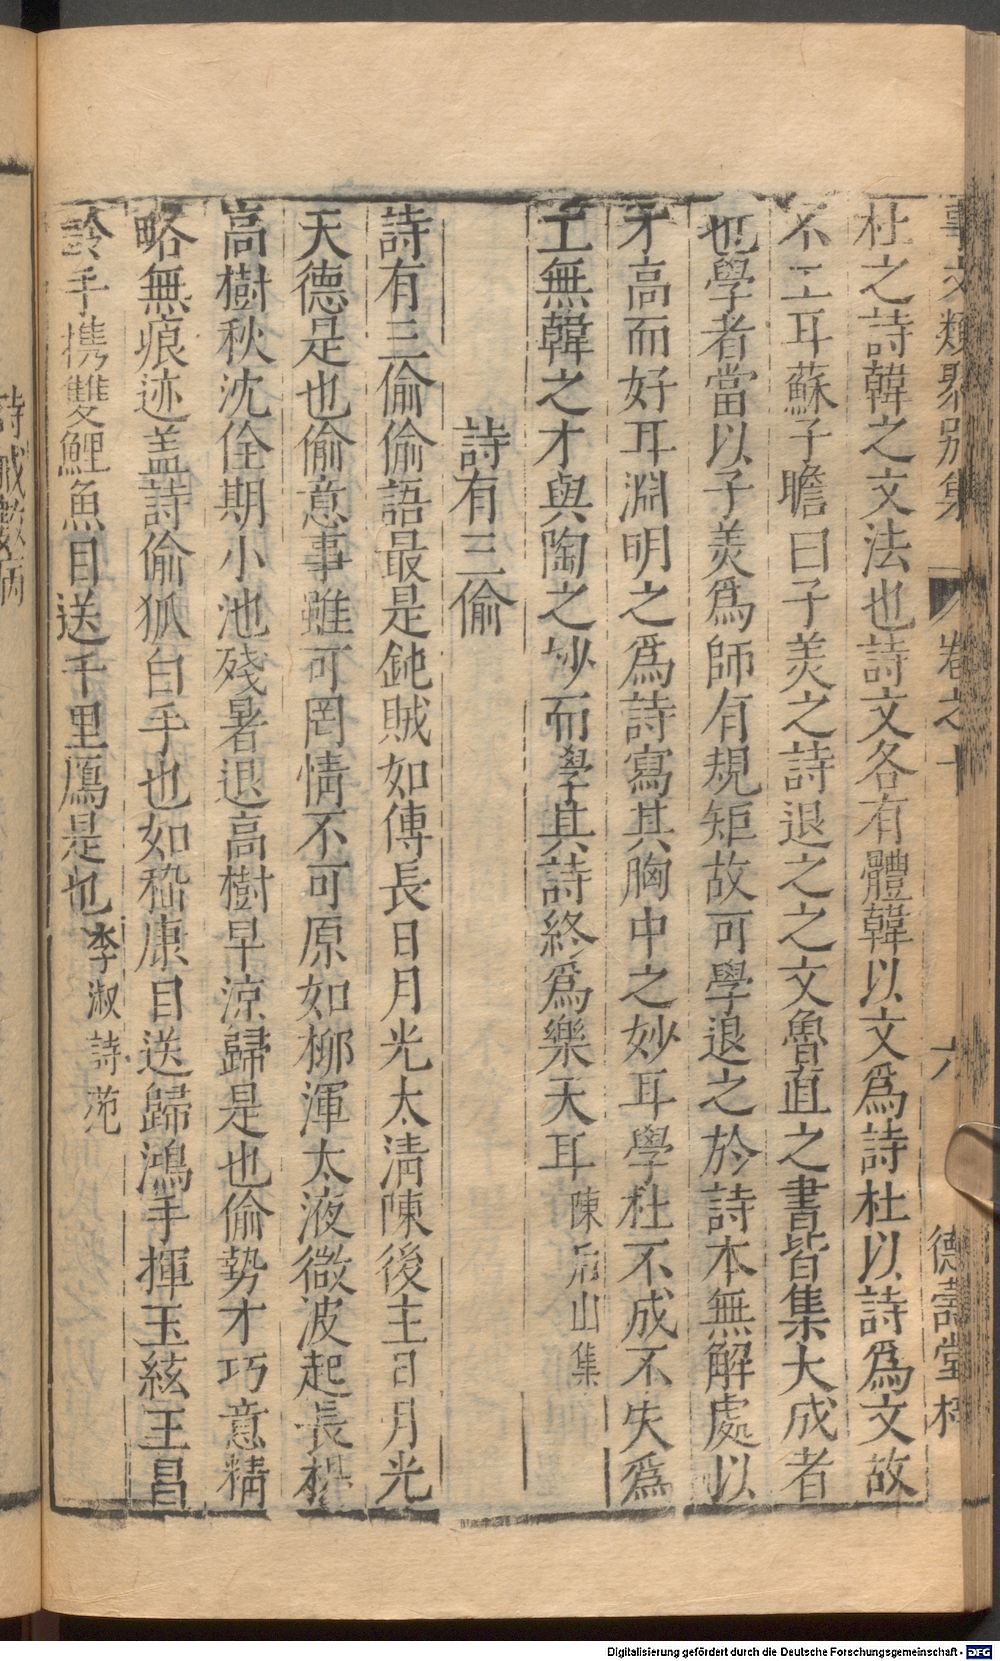 事文類聚別集 卷之十 六 德壽堂梓
杜之詩韓之文法也詩文各有體韓以文爲詩杜以詩爲文故
不工耳蘇子瞻曰子美之詩退之之文魯直之書皆集大成者
也學者當以子美爲師有規矩故可學退之於詩本無解處以
才高而好耳淵明之爲詩寫其胸中之妙耳學杜不成不失爲
工無韓之才與陶之妙而學其詩終爲樂天耳陳后山集
詩有三偷
詩有三偷偷語最是鈍賊如傅長日月光太清陳後主日月光
天德是也偷意事雖可罔情不可原如柳渾太液微波起長楊
高樹秋沈佺期小池殘暑退高樹早涼歸是也偷勢才巧意精
略無痕迹盖詩偷狐白手也如嵇康目送歸鴻手揮五絃王昌
齡手携雙鯉魚目送千里鴈是也李淑詩苑
Digitalisierung gefördert durch die Deutsche Forschungsgemeinschaft - DFG